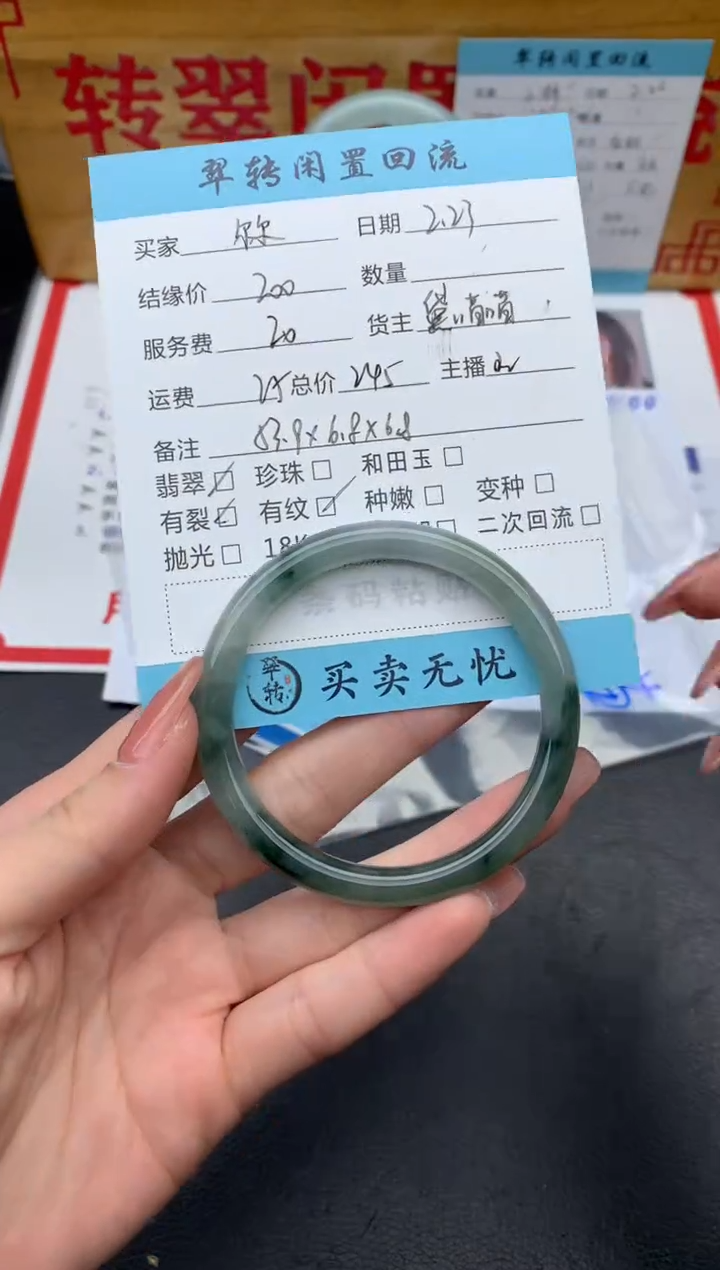 转翠闲置
翠转闲置回流
翠转闲置回流
买家 日期 2.23
结缘价 200 数量
服务费 20 货主
运费 25 总价 245 主播
备注 53.9×6.8×6.8
翡翠 珍珠 和田玉
有裂 有纹 种嫩 变种
抛光 18K 二次回流
条码粘贴
翠转 买卖无忧